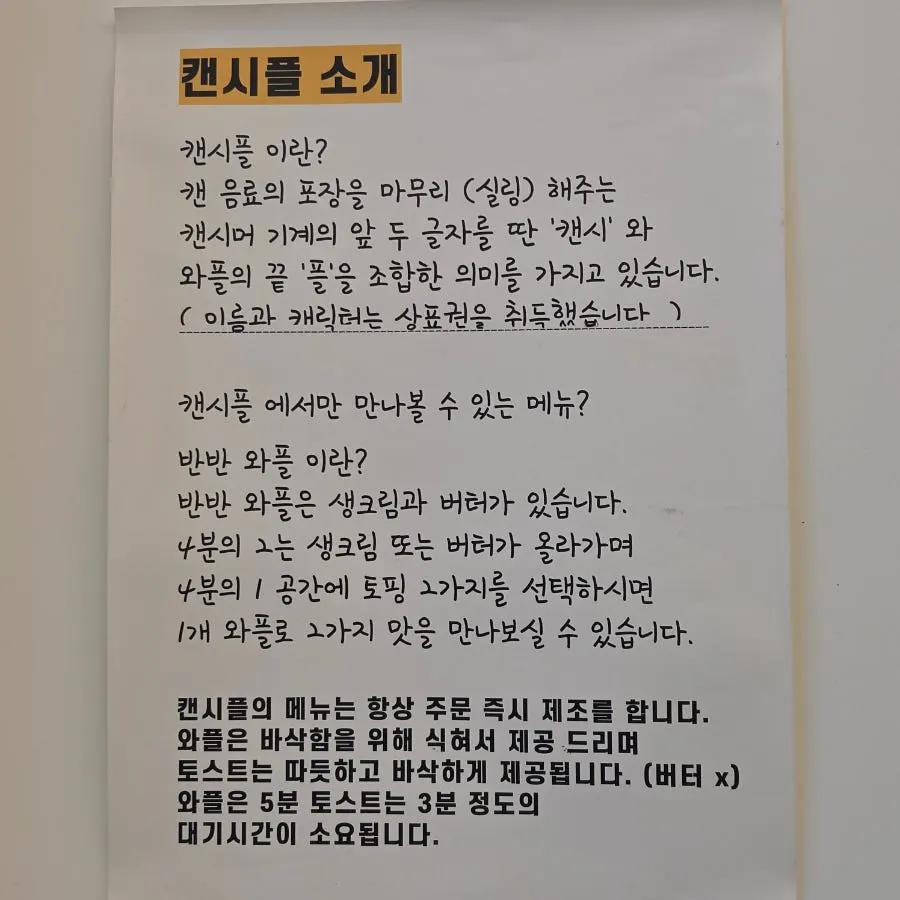 캔시플 소개
캔시플 이란?
캔 음료의 포장을 마무리 (실링) 해주는
캔시머 기계의 앞 두 글자를 딴 '캔시' 와
와플의 끝 '플'을 조합한 의미를 가지고 있습니다.
( 이름과 캐릭터는 상표권을 취득했습니다 )
캔시플 에서만 만나볼 수 있는 메뉴?
반반 와플 이란?
반반 와플은 생크림과 버터가 있습니다.
4분의 2는 생크림 또는 버터가 올라가며
4분의 1 공간에 토핑 2가지를 선택하시면
1개 와플로 2가지 맛을 만나보실 수 있습니다.
캔시플의 메뉴는 항상 주문 즉시 제조를 합니다.
와플은 바삭함을 위해 식혀서 제공 드리며
토스트는 따듯하고 바삭하게 제공됩니다. (버터 x)
와플은 5분 토스트는 3분 정도의
대기시간이 소요됩니다.